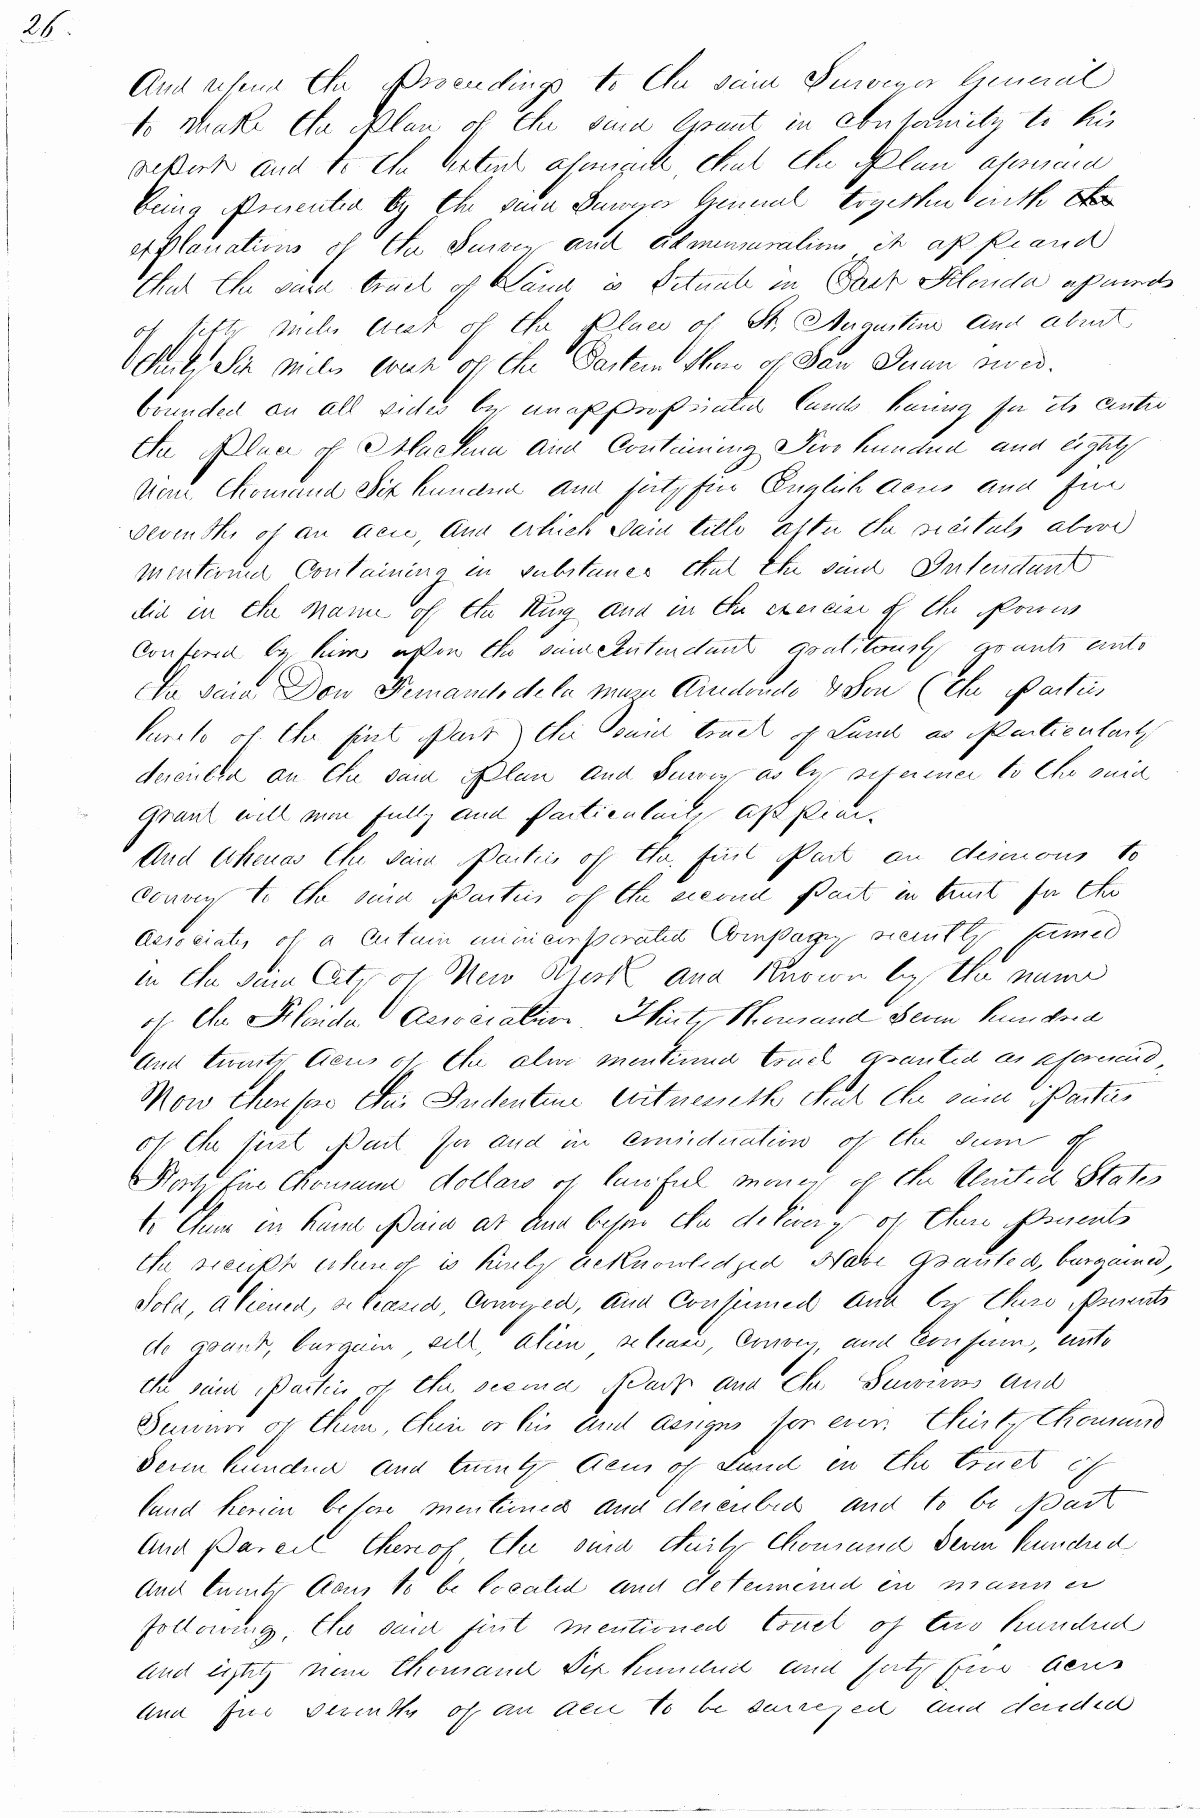 26.
And refend the Proceedings to the said Surveyor General
to make the Plan of the said Grant in conformity to his
report and to the extent aforesaid, that the Plan aforesaid
being Presented by the said Surveyor General together with the
explanations of the Survey and admensurations it appeared
that the said tract of Land is Situate in East Florida upwards
of fifty miles west of the Place of St. Augustine and about
thirty Six miles west of the Eastern Shore of San Juan river.
bounded on all sides by unappropriated lands having for its centre
the Place of Alachua and Containing Two hundred and eighty
nine thousand Six hundred and forty five English acres and five
sevenths of an acre, and which said title after the recitals above
mentioned Containing in substance that the said Intendant
did in the name of the King and in the exercise of the Powers
confered by him upon the said Intendant gratitously grants unto
the said Don Fernando de la maza Arredondo & Son (the Parties
hereto of the first Part) the said tract of Land as Particularly
described on the said Plan and Survey as by reference to the said
grant will more fully and Particularly appear.
And Whereas the said Parties of the first Part are desireous to
convey to the said Parties of the second Part in trust for the
associates of a Certain unincorporated Company recently formed
in the said City of New York and Known by the name
of the Florida Association. Thirty Thousand Seven hundred
and twenty Acres of the above mentioned tract granted as aforesaid,
Now therefore this Indenture Witnesseth that the said Parties
of the first Part for and in consideration of the sum of
Forty five thousand dollars of lawful money of the United States
to them in hand Paid at and before the delivery of these Presents
the receipt whereof is hereby acknowledged Have granted, bargained,
Sold, aliened, released, Conveyed, and Confirmed and by these Presents
do grant, bargain, sell, alien, release, Convey, and Confirm, unto
the said Parties of the second Part and the Survivors and
Survivor of them, their or his and assigns for ever. thirty thousand
Seven hundred and twenty Acres of Land in the tract of
land herein before mentioned and described and to be Part
and Parcel thereof, the said thirty thousand Seven hundred
and twenty Acres to be located and determined in manner
following, the said first mentioned tract of two hundred
and eighty nine thousand Six hundred and forty five acres
and five sevenths of an acre to be surveyed and devided